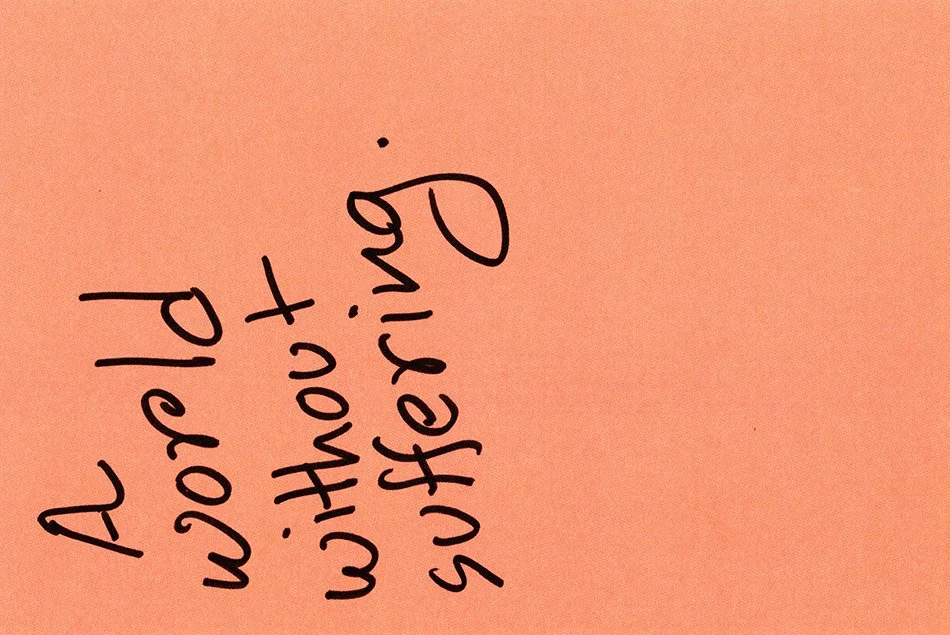 A
world
without
suffering.